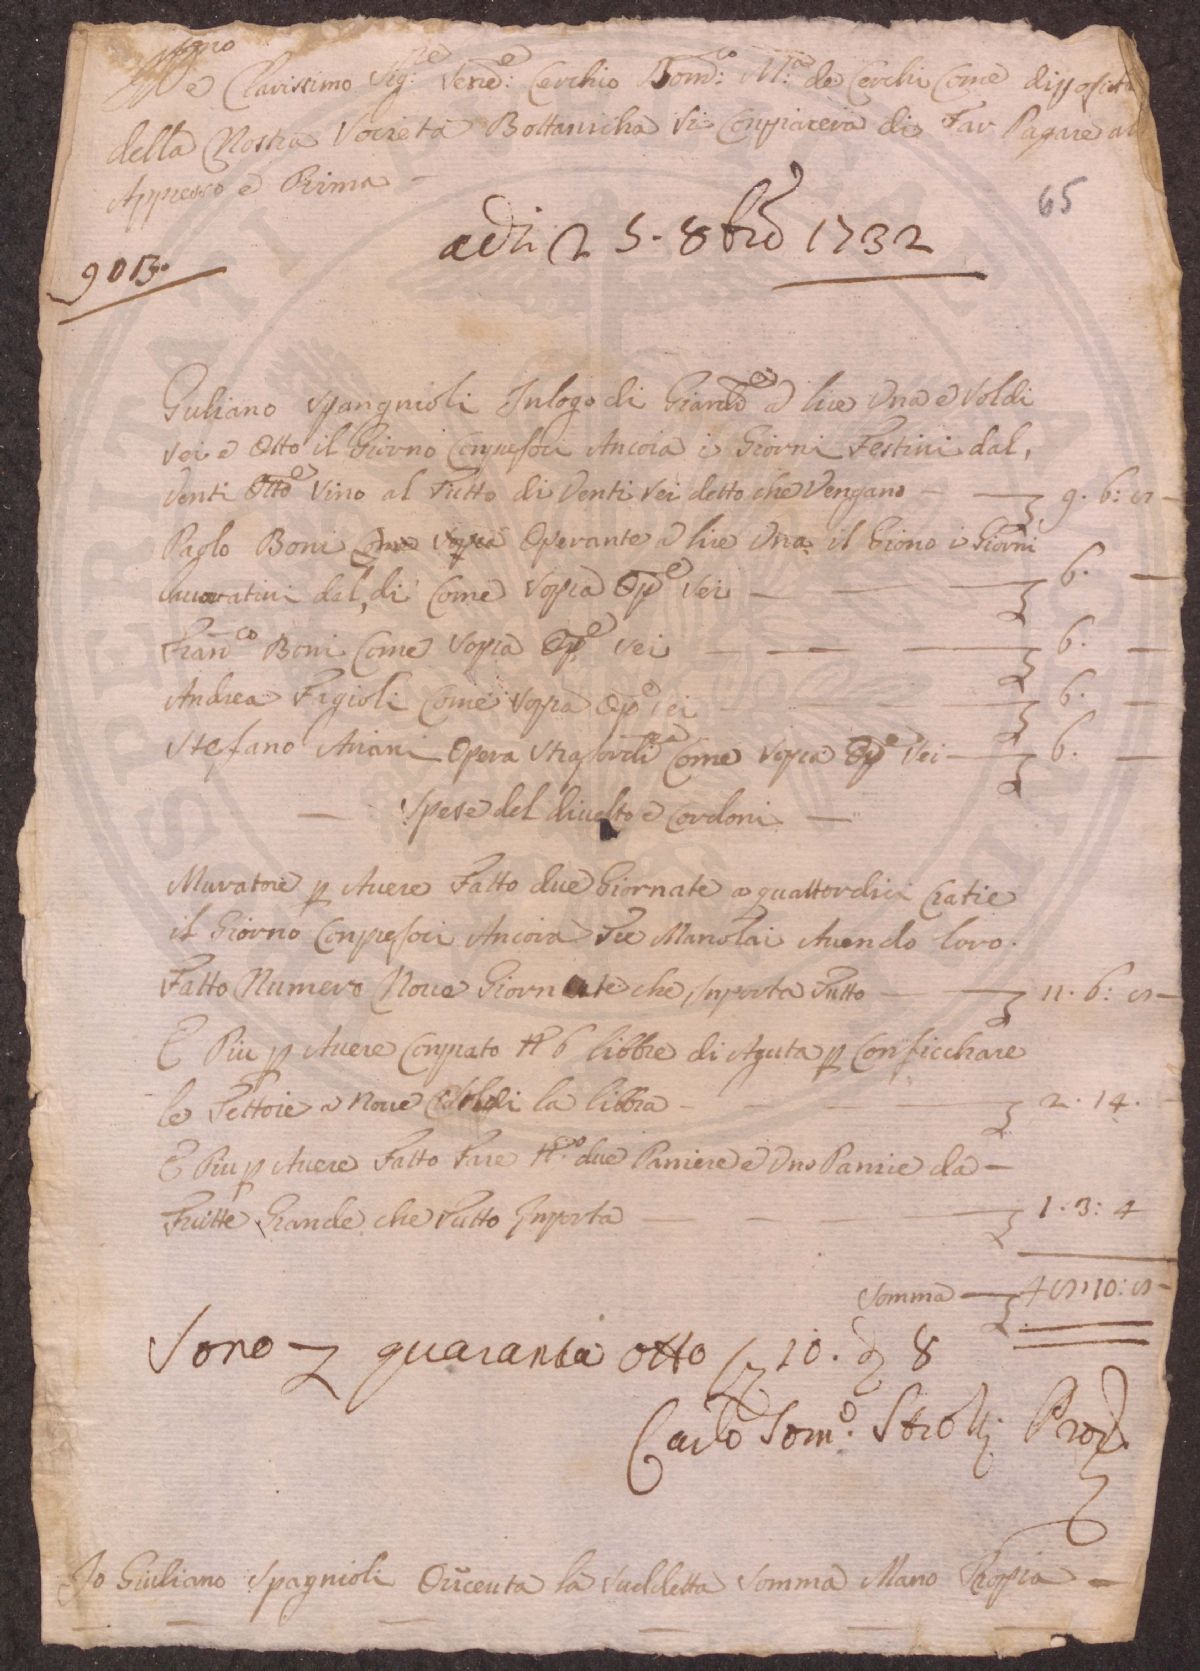 Ill.mo e Clarissimo Sig.re Sen.e Cerchio Dom.co M.a de Cerchi Come dipositario
della Nostra Società Bottanicha Si Conpiacerà di Far Pagare al
Appresso e Prima
65
adi 25. 8bre 1732
90 B.
Guliano Spangnioli In logo di Giard.e a lire Una e Soldi
Sei e Otto il Giorno Conpresoci Ancora i Giorni Festivi dal,
Venti Otto Sino al Tutto di Venti Sei detto che Vengano — 9. 6: 8
Paolo Boni Come Sopra Operante a lire Una il Giono i Giorni
lavorativi dal, di Come Sopra Op.e Sei — 6.
Fran.co Boni Come Sopra Op.e Sei — 6.
Andrea Fagioli Come Sopra Op.e Sei — 6.
Stefano Mariani Opera Straordi.ra Come Sopra Op.e Sei — 6.
— Spese del divelto e Cordoni —
Muratore p Avere Fatto due Giornate a quattordici Cratie
il Giorno Conpresoci Ancora Tre Manolai Avendo loro.
Fatto Numero Nove Giornate che Inporta Tutto — 11. 6: 8
E Piu p Avere Conprato N 6 libbre di Aguta p Conficchare
le Tettoie a Nove Soldi la libbra — 2. 14.
E Piu p Avere Fatto Fare N.o due Paniere e Uno Panire da —
Frutte Grande che Tutto Inporta — 1. 3: 4
Somma — 48: 10: 8
Sono quaranta otto 10. 8
Carlo Tom.o Strozzi Prov.
Io Giuliano Spagnioli O riceuta la Suddetta Somma Mano Propia —